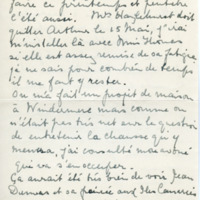 faire ce printemps et peutêtre
c'été aussi. Mrs Hazlehurst doit
quitter Arthur le 15 Mai, j'irai
m'installer là avec Miss
si elle est assez remise de sa fatigue
je ne sais pour combien de temps
il me faut y rester.
On m'a fait un projet de maison
à Windermere mais comme on
n'était pas très net sur la question
de entretenir la chausse qui y
menera, j'ai consulté mon
qui va s'en occuper.
Ça aurait été très bien de voir Jean
Dumas et sa poirée aux Iles Canaries